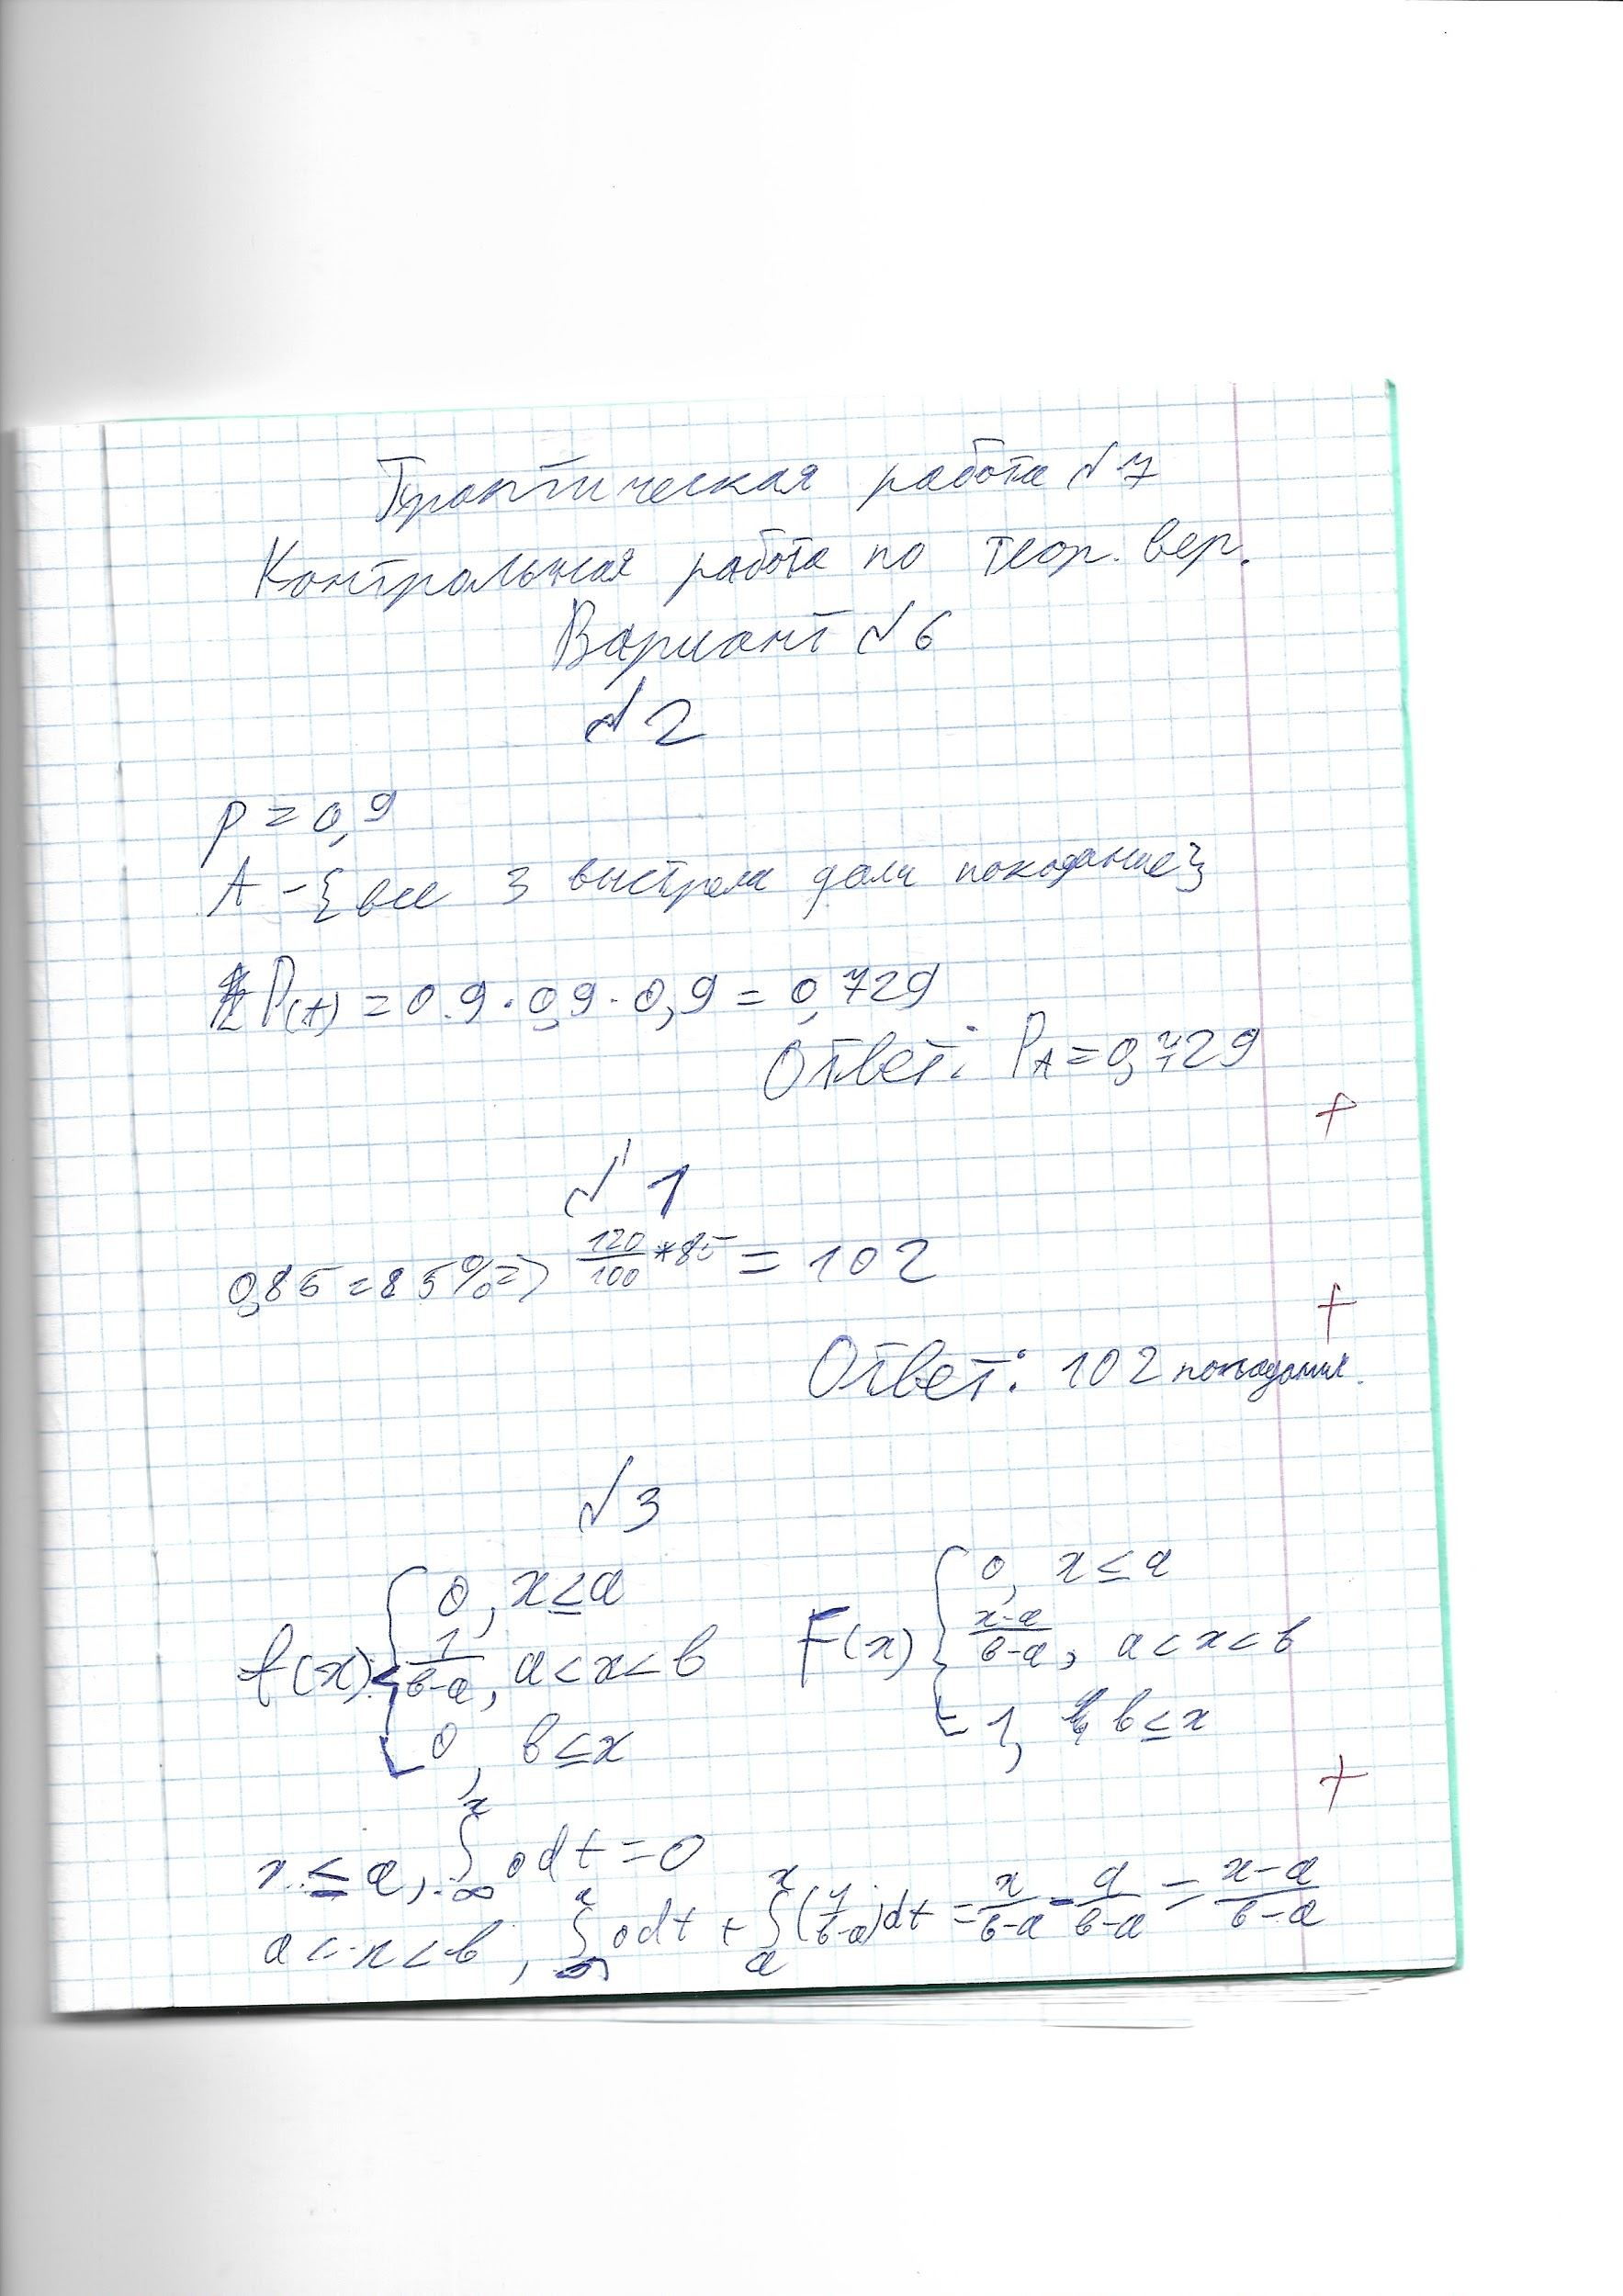 Практическая работа №7
Контрольная работа по теор. вер.
Вариант №6
№2
p = 0,9
A - {все 3 выстрела дали попадание}
P(A) = 0.9 · 0,9 · 0,9 = 0,729
Ответ: P_A = 0,729
+
№1
0,85 = 85% => 120/100 * 85 = 102
+
Ответ: 102 попадания.
№3
f(x) = { 0, x ≤ a; 1/(в-a), a < x < в; 0, в ≤ x
F(x) { 0, x ≤ a; (x-a)/(в-a), a < x < в; 1, в ≤ x
+
x ≤ a, ∫_{-∞}^{x} 0dt = 0
a < x < в, ∫_{-∞}^{a} 0dt + ∫_{a}^{x} (1/(в-a))dt = x/(в-a) - a/(в-a) = (x-a)/(в-a)